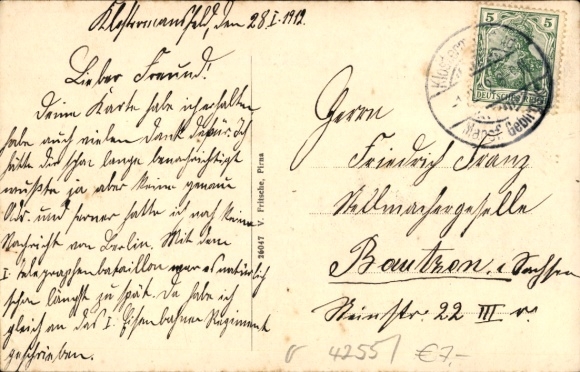 Klostermansfeld, den 28.I.1912.
Lieber Freund!
Deine Karte habe ich erhalten
habe auch vielen Dank dafür. Ich
hätte dir schon lange benachrichtigt
wußte ja aber keine genaue
Adr. und ferner hatte ich noch keine
Nachricht von Berlin. Mit dem
I. Telegraphenbataillon war es natürlich
schon längst zu spät. Da habe ich
gleich an das I. Eisenbahner Regiment
geschrieben.
26047 V. Fritsche, Pirna
5 5
DEUTSCHES REICH
Herrn
Friedrich Franz
Stellmachergeselle
Bautzen i. Sachsen
Steinstr. 22 III r.
4255 €7,-